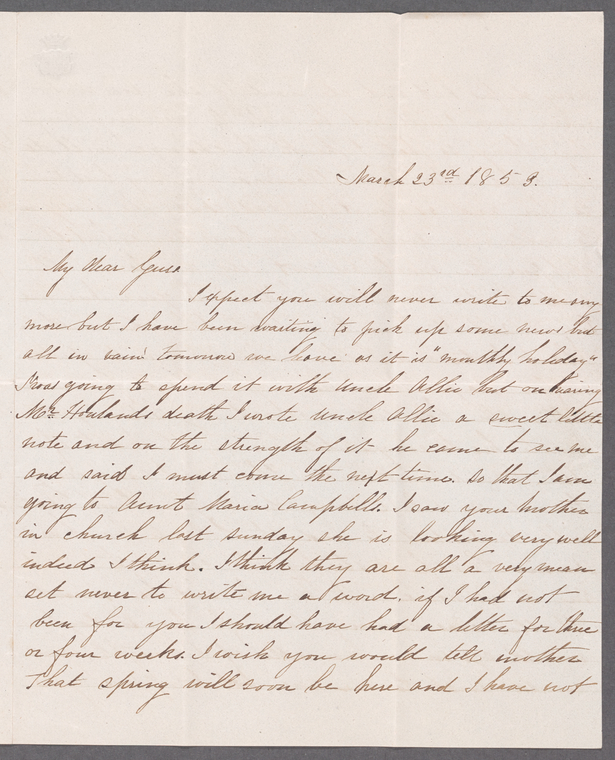 March 23rd 1853.
My dear Guss
I expect you will never write to me any
more but I have been waiting to pick up some news but
all in vain tomorrow we have as it is "monthly holiday"
I was going to spend it with Uncle Allie but on hearing
Mr. Howlands death I wrote Uncle Allie a sweet little
note and on the strength of it he came to see me
and said I must come the next time. so that I am
going to Aunt Maria Campbells. I saw your mother
in church last sunday she is looking very well
indeed I think. I think they are all a very mean
set never to write me a word. if I had not
been for you I should have had a letter for three
or four weeks. I wish you would tell mother
That spring will soon be here and I have not